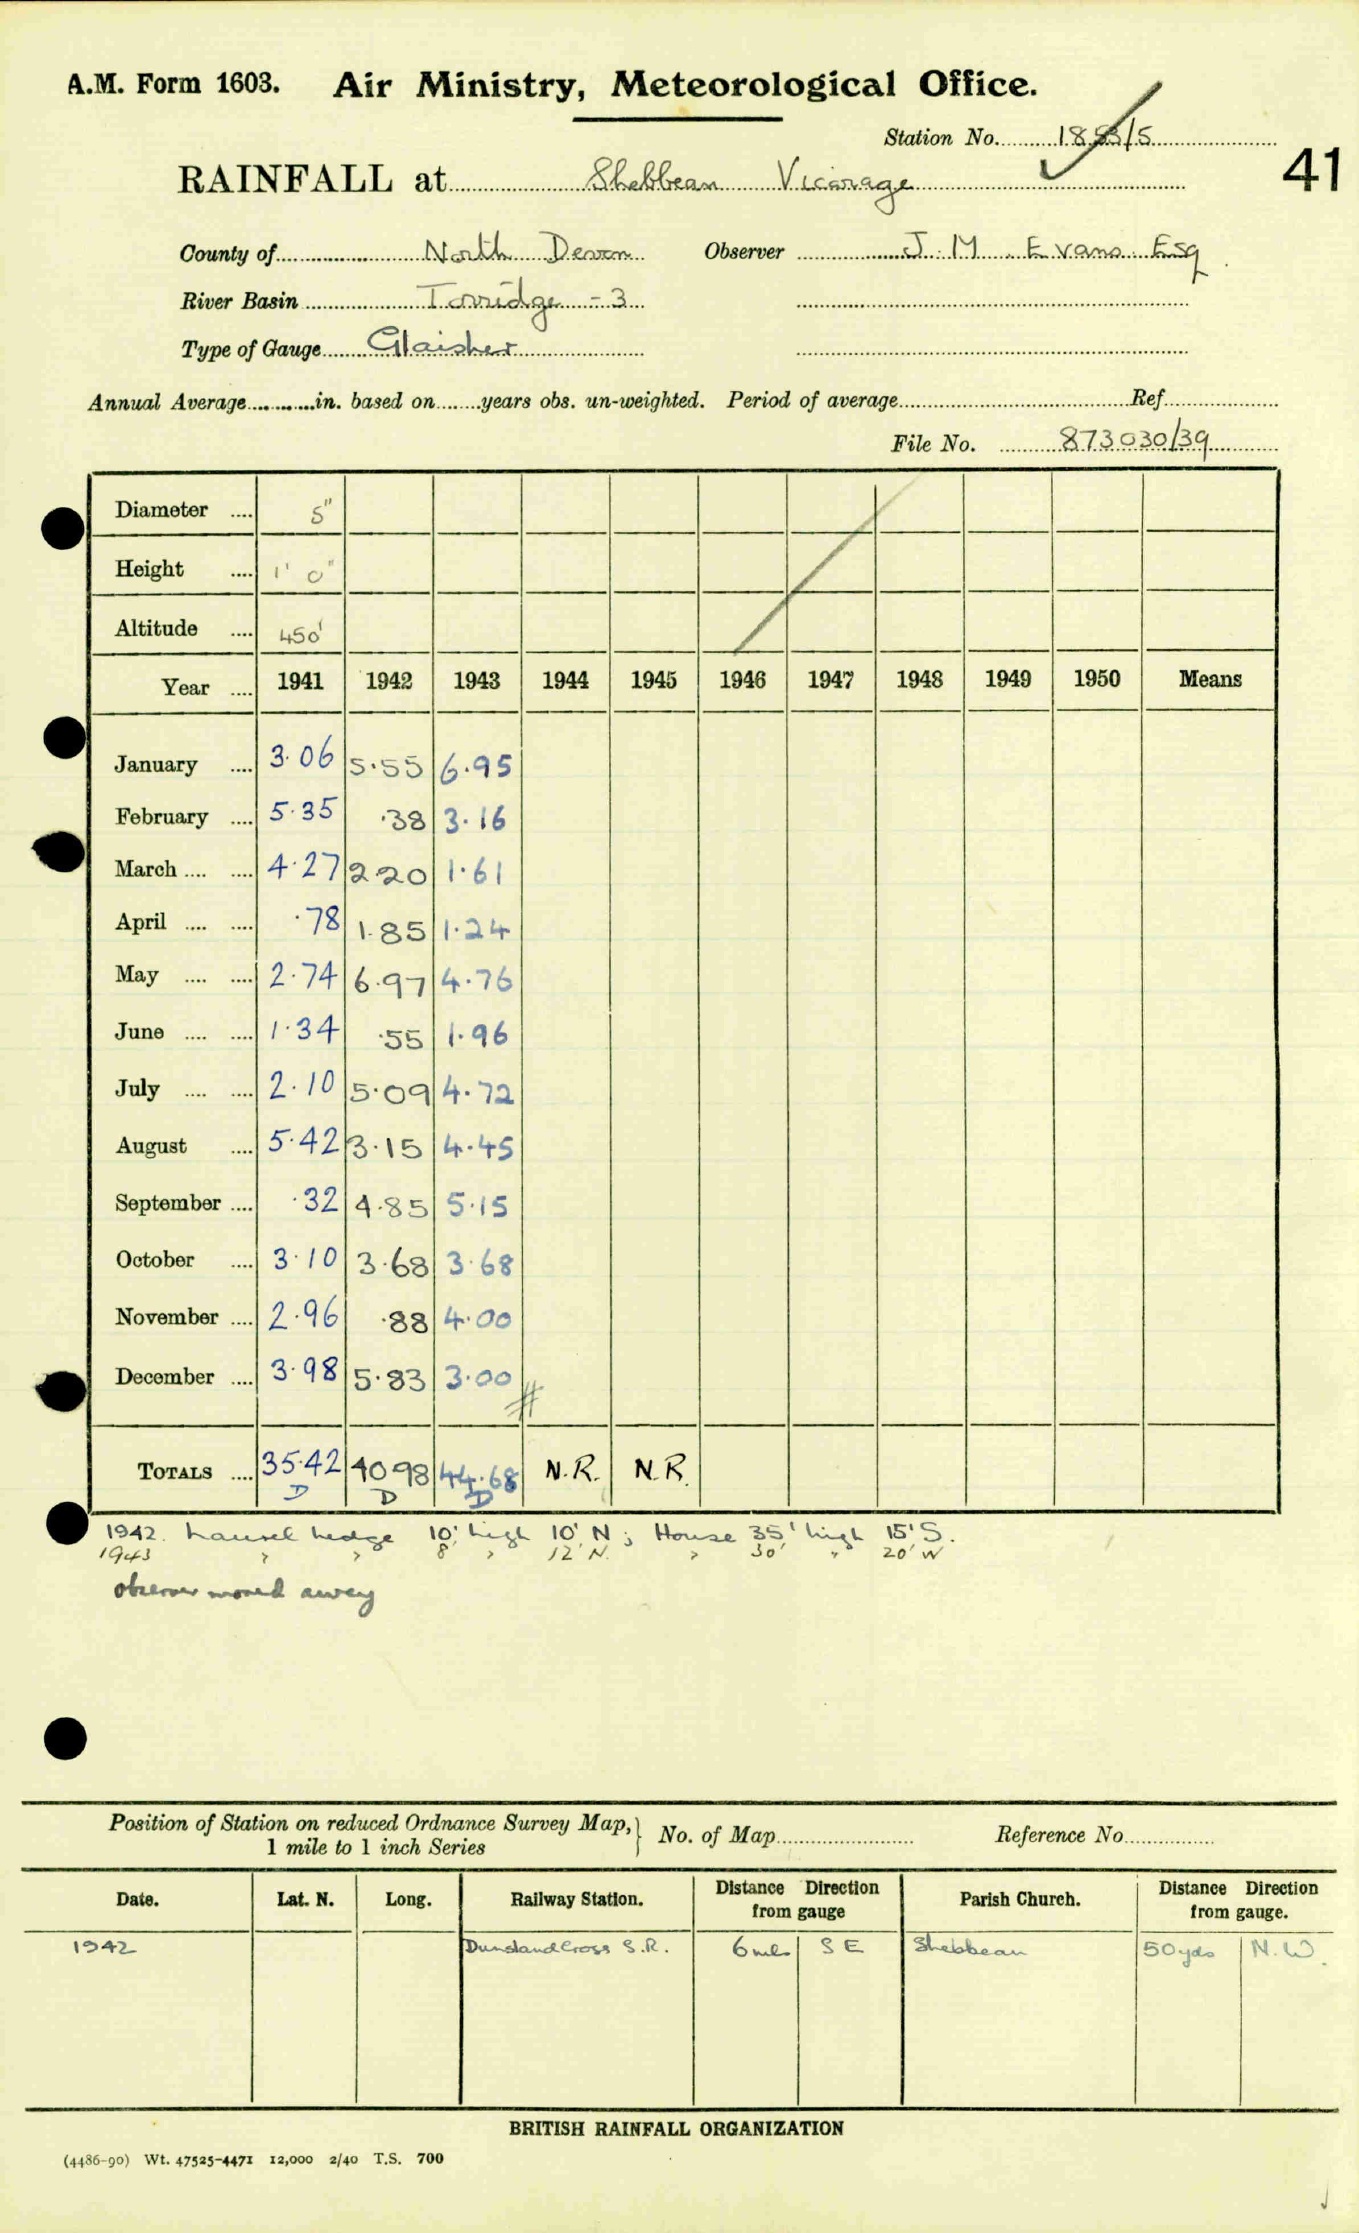 A.M. Form 1603. Air Ministry, Meteorological Office.
Station No. 1853/5
41
RAINFALL at Shebbear Vicarage
County of North Devon Observer J. M. Evans Esq
River Basin Torridge - 3
Type of Gauge Glaisher
Annual Average in. based on years obs. un-weighted. Period of average Ref
File No. 873030/39
Diameter 5"
Height 1' 0"
Altitude 450'
Year 1941 1942 1943 1944 1945 1946 1947 1948 1949 1950 Means
January 3.06 5.55 6.95
February 5.35 .38 3.16
March 4.27 2.20 1.61
April .78 1.85 1.24
May 2.74 6.97 4.76
June 1.34 .55 1.96
July 2.10 5.09 4.72
August 5.42 3.15 4.45
September .32 4.85 5.15
October 3.10 3.68 3.68
November 2.96 .88 4.00
December 3.98 5.83 3.00
#
TOTALS 35.42 40.98 44.68 N.R. N.R.
D D D
1942. Laurel hedge 10' high 10' N; House 35' high 15' S.
1943 " " 8' " 12' N. " 30' " 20' W
observer moved away
Position of Station on reduced Ordnance Survey Map, 1 mile to 1 inch Series } No. of Map Reference No
Date. Lat. N. Long. Railway Station. Distance Direction from gauge Parish Church. Distance Direction from gauge.
1942 Dunsland Cross S.R. 6 mls S E Shebbear 50 yds N.W.
BRITISH RAINFALL ORGANIZATION
(4486-90) Wt. 47525-4471 12,000 2/40 T.S. 700